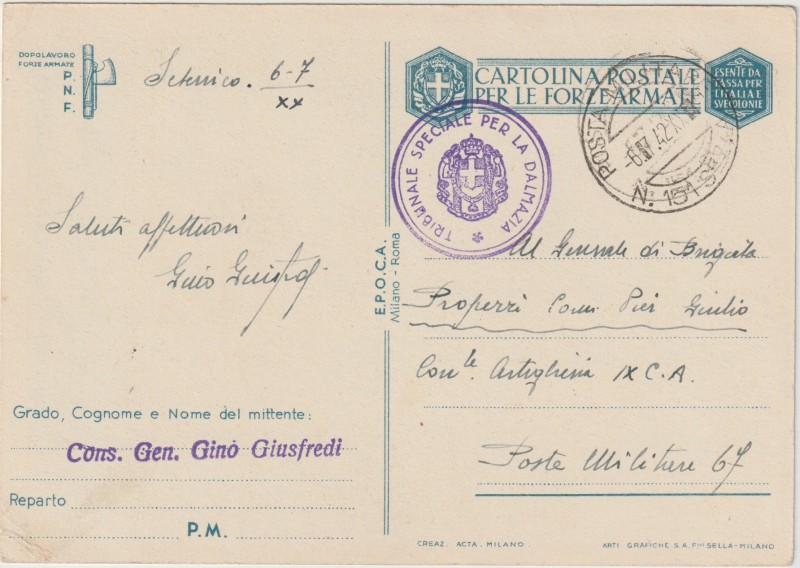 DOPOLAVORO
FORZE ARMATE
P.
N.
F.
6-7
XX
Saluti affettuosi
Grado, Cognome e Nome del mittente:
Cons. Gen. Gino Giusfredi
Reparto
P.M.
E.P.O.C.A.
Milano - Roma
CARTOLINA POSTALE
PER LE FORZE ARMATE
ESENTE DA
TASSA PER
L'ITALIA E
SUE COLONIE
TRIBUNALE SPECIALE PER LA DALMAZIA
POSTA MILITARE
N. 151
Al Generale di Brigata
Properzi Com. Pier Giulio
Com.te Artiglieria IX C.A.
Posta Militare 67
CREAZ. ACTA. MILANO
ARTI GRAFICHE S.A. Flli SELLA-MILANO